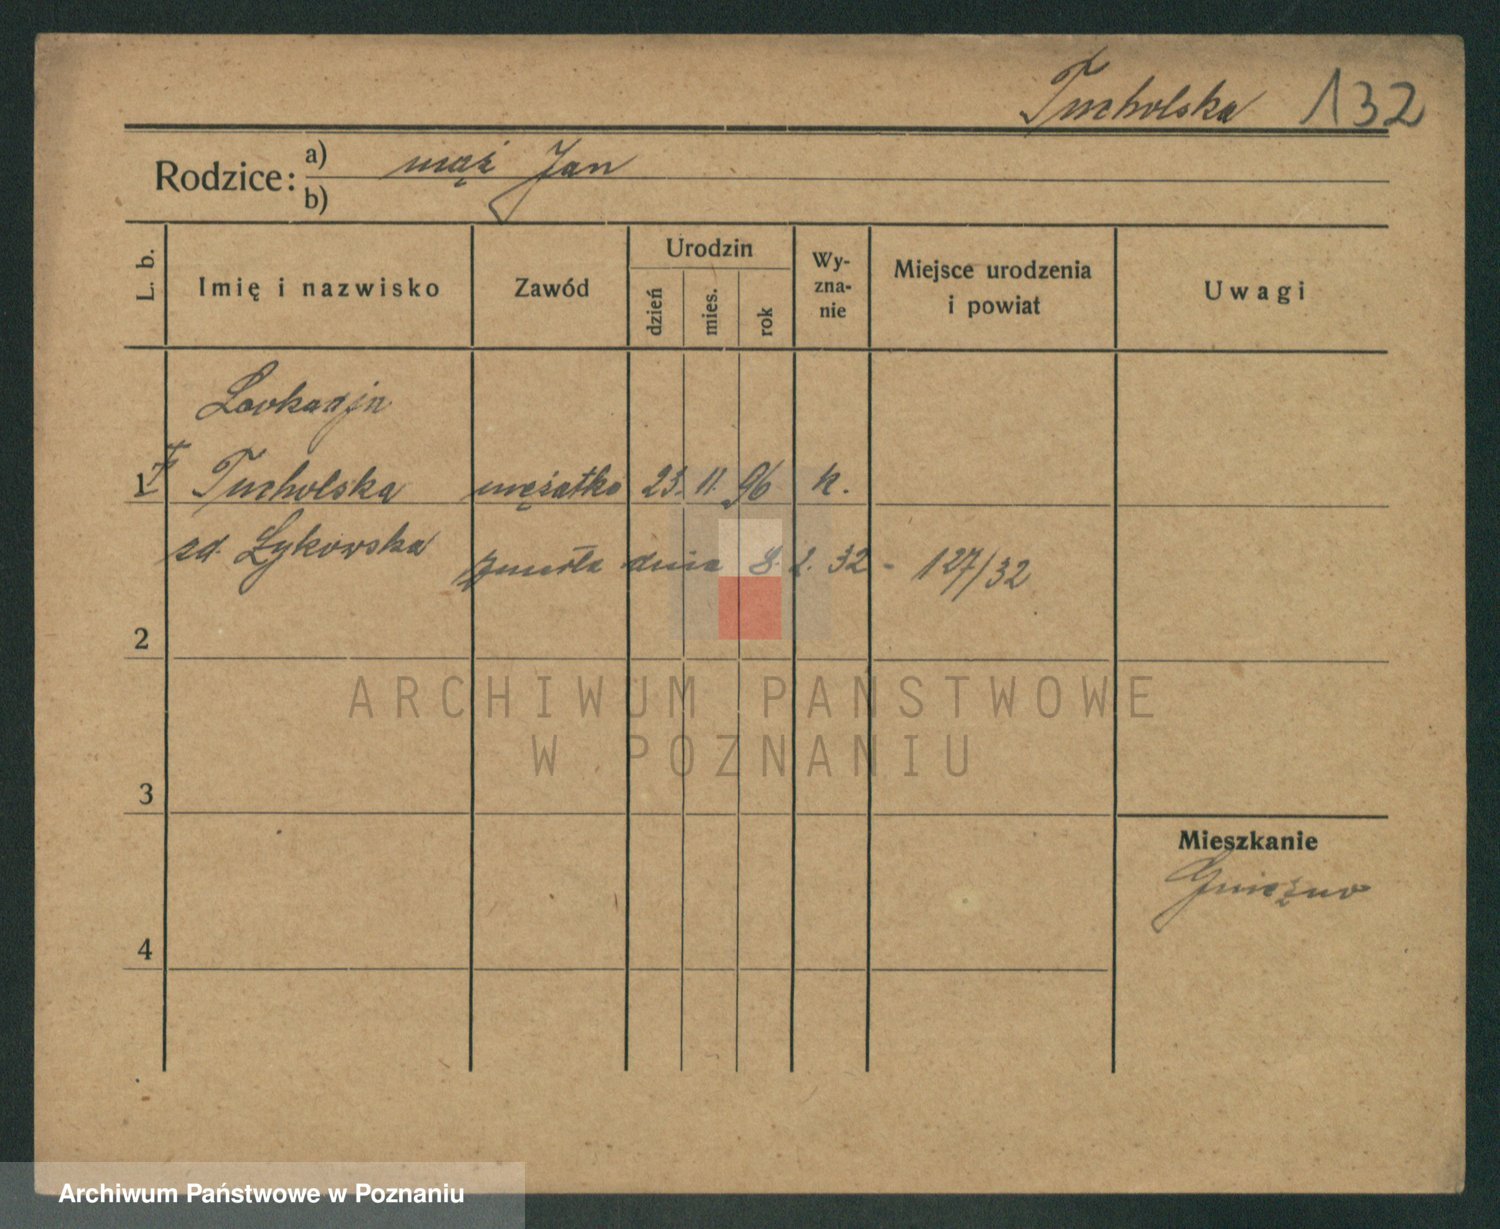 Tucholska 132
Rodzice: a) mąż Jan
b)
L. b.
Imię i nazwisko
Zawód
Urodzin
dzień
mies.
rok
Wy-
zna-
nie
Miejsce urodzenia
i powiat
Uwagi
1 Tucholska mężatka 23. 11. 96 k.
zd. Łykowska zmarła dnia 8. 2. 32 - 127/32
2
3
4
Mieszkanie
Gniezno
ARCHIWUM PAŃSTWOWE
W POZNANIU
Archiwum Państwowe w Poznaniu